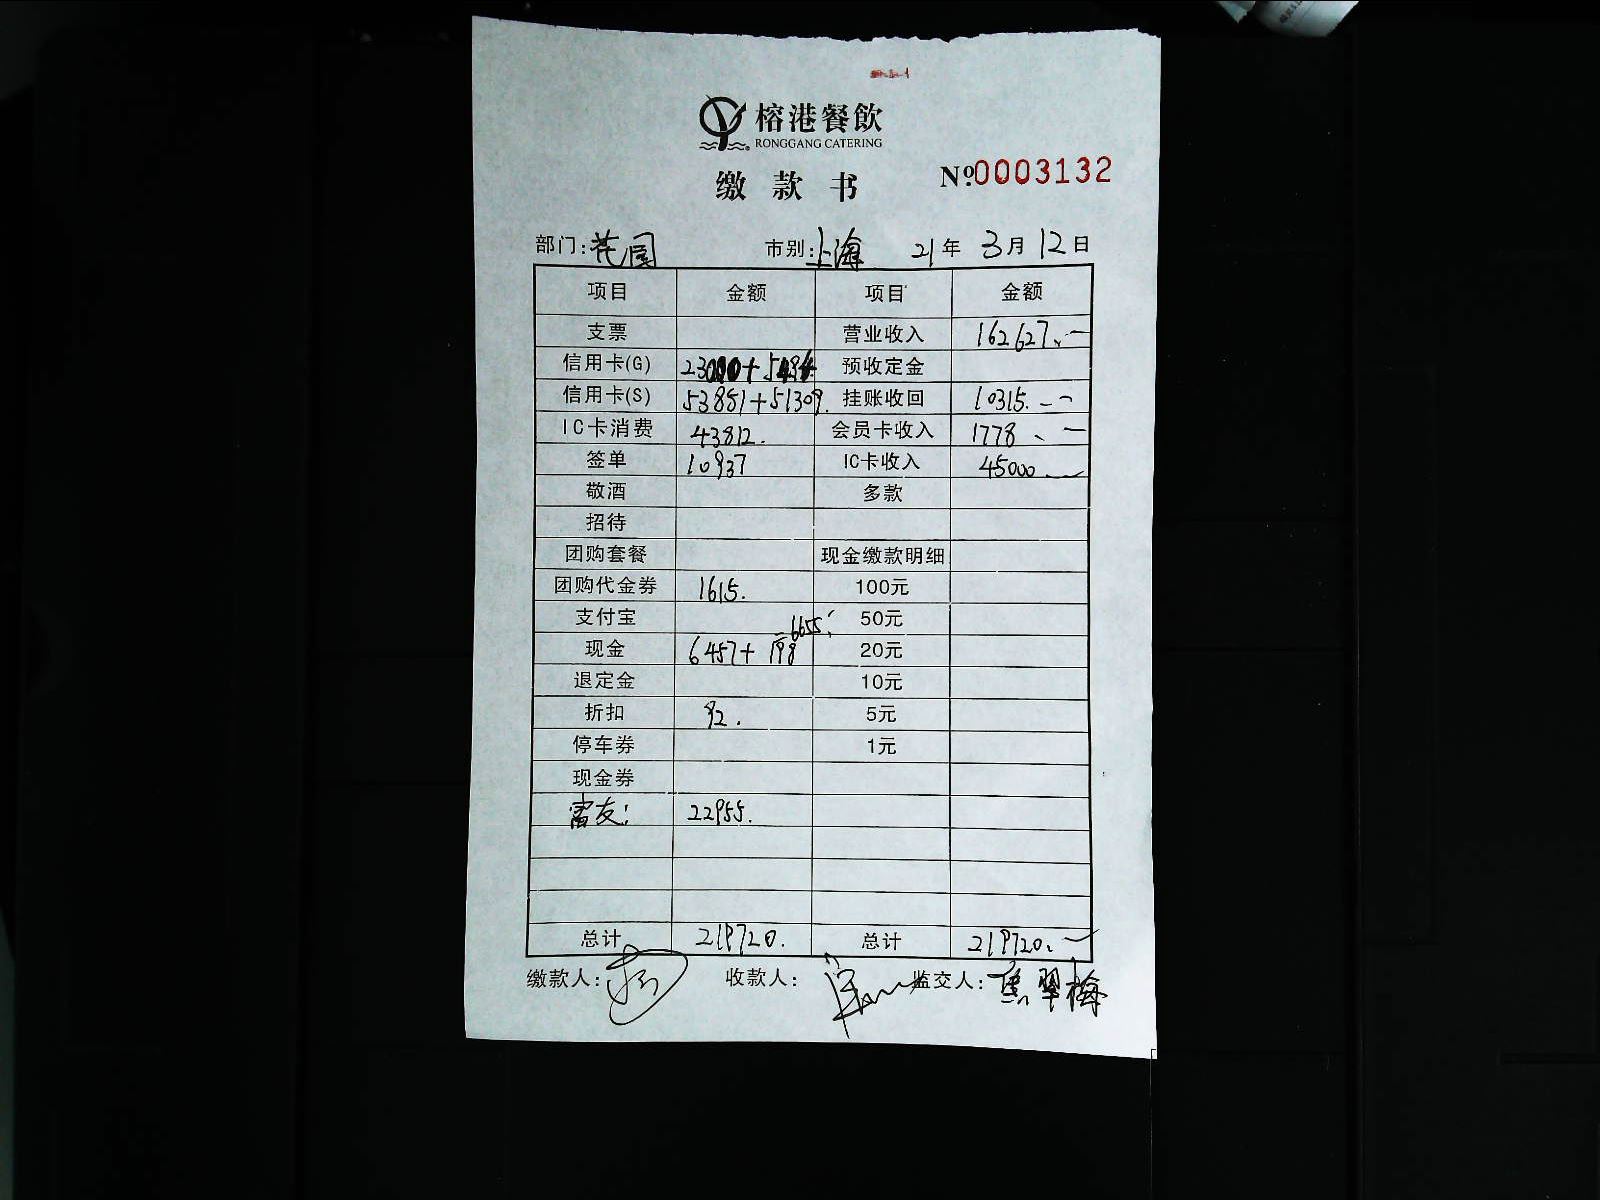 榕港餐飲
RONGGANG CATERING
缴款书
№0003132
部门:花园 市别:上海 21年3月12日
项目 金额 项目 金额
支票 营业收入 162627.-
信用卡(G) 23000+5494 预收定金
信用卡(S) 53851+51309. 挂账收回 10315.-
IC卡消费 43812. 会员卡收入 1778.-
签单 10937 IC卡收入 45000.-
敬酒 多款
招待
团购套餐 现金缴款明细
团购代金券 1615. 100元
支付宝 50元
现金 6457+198=6655. 20元
退定金 10元
折扣 92. 5元
停车券 1元
现金券
富友: 22955.
总计 219720. 总计 219720.-
缴款人: 收款人: 监交人:焦翠梅